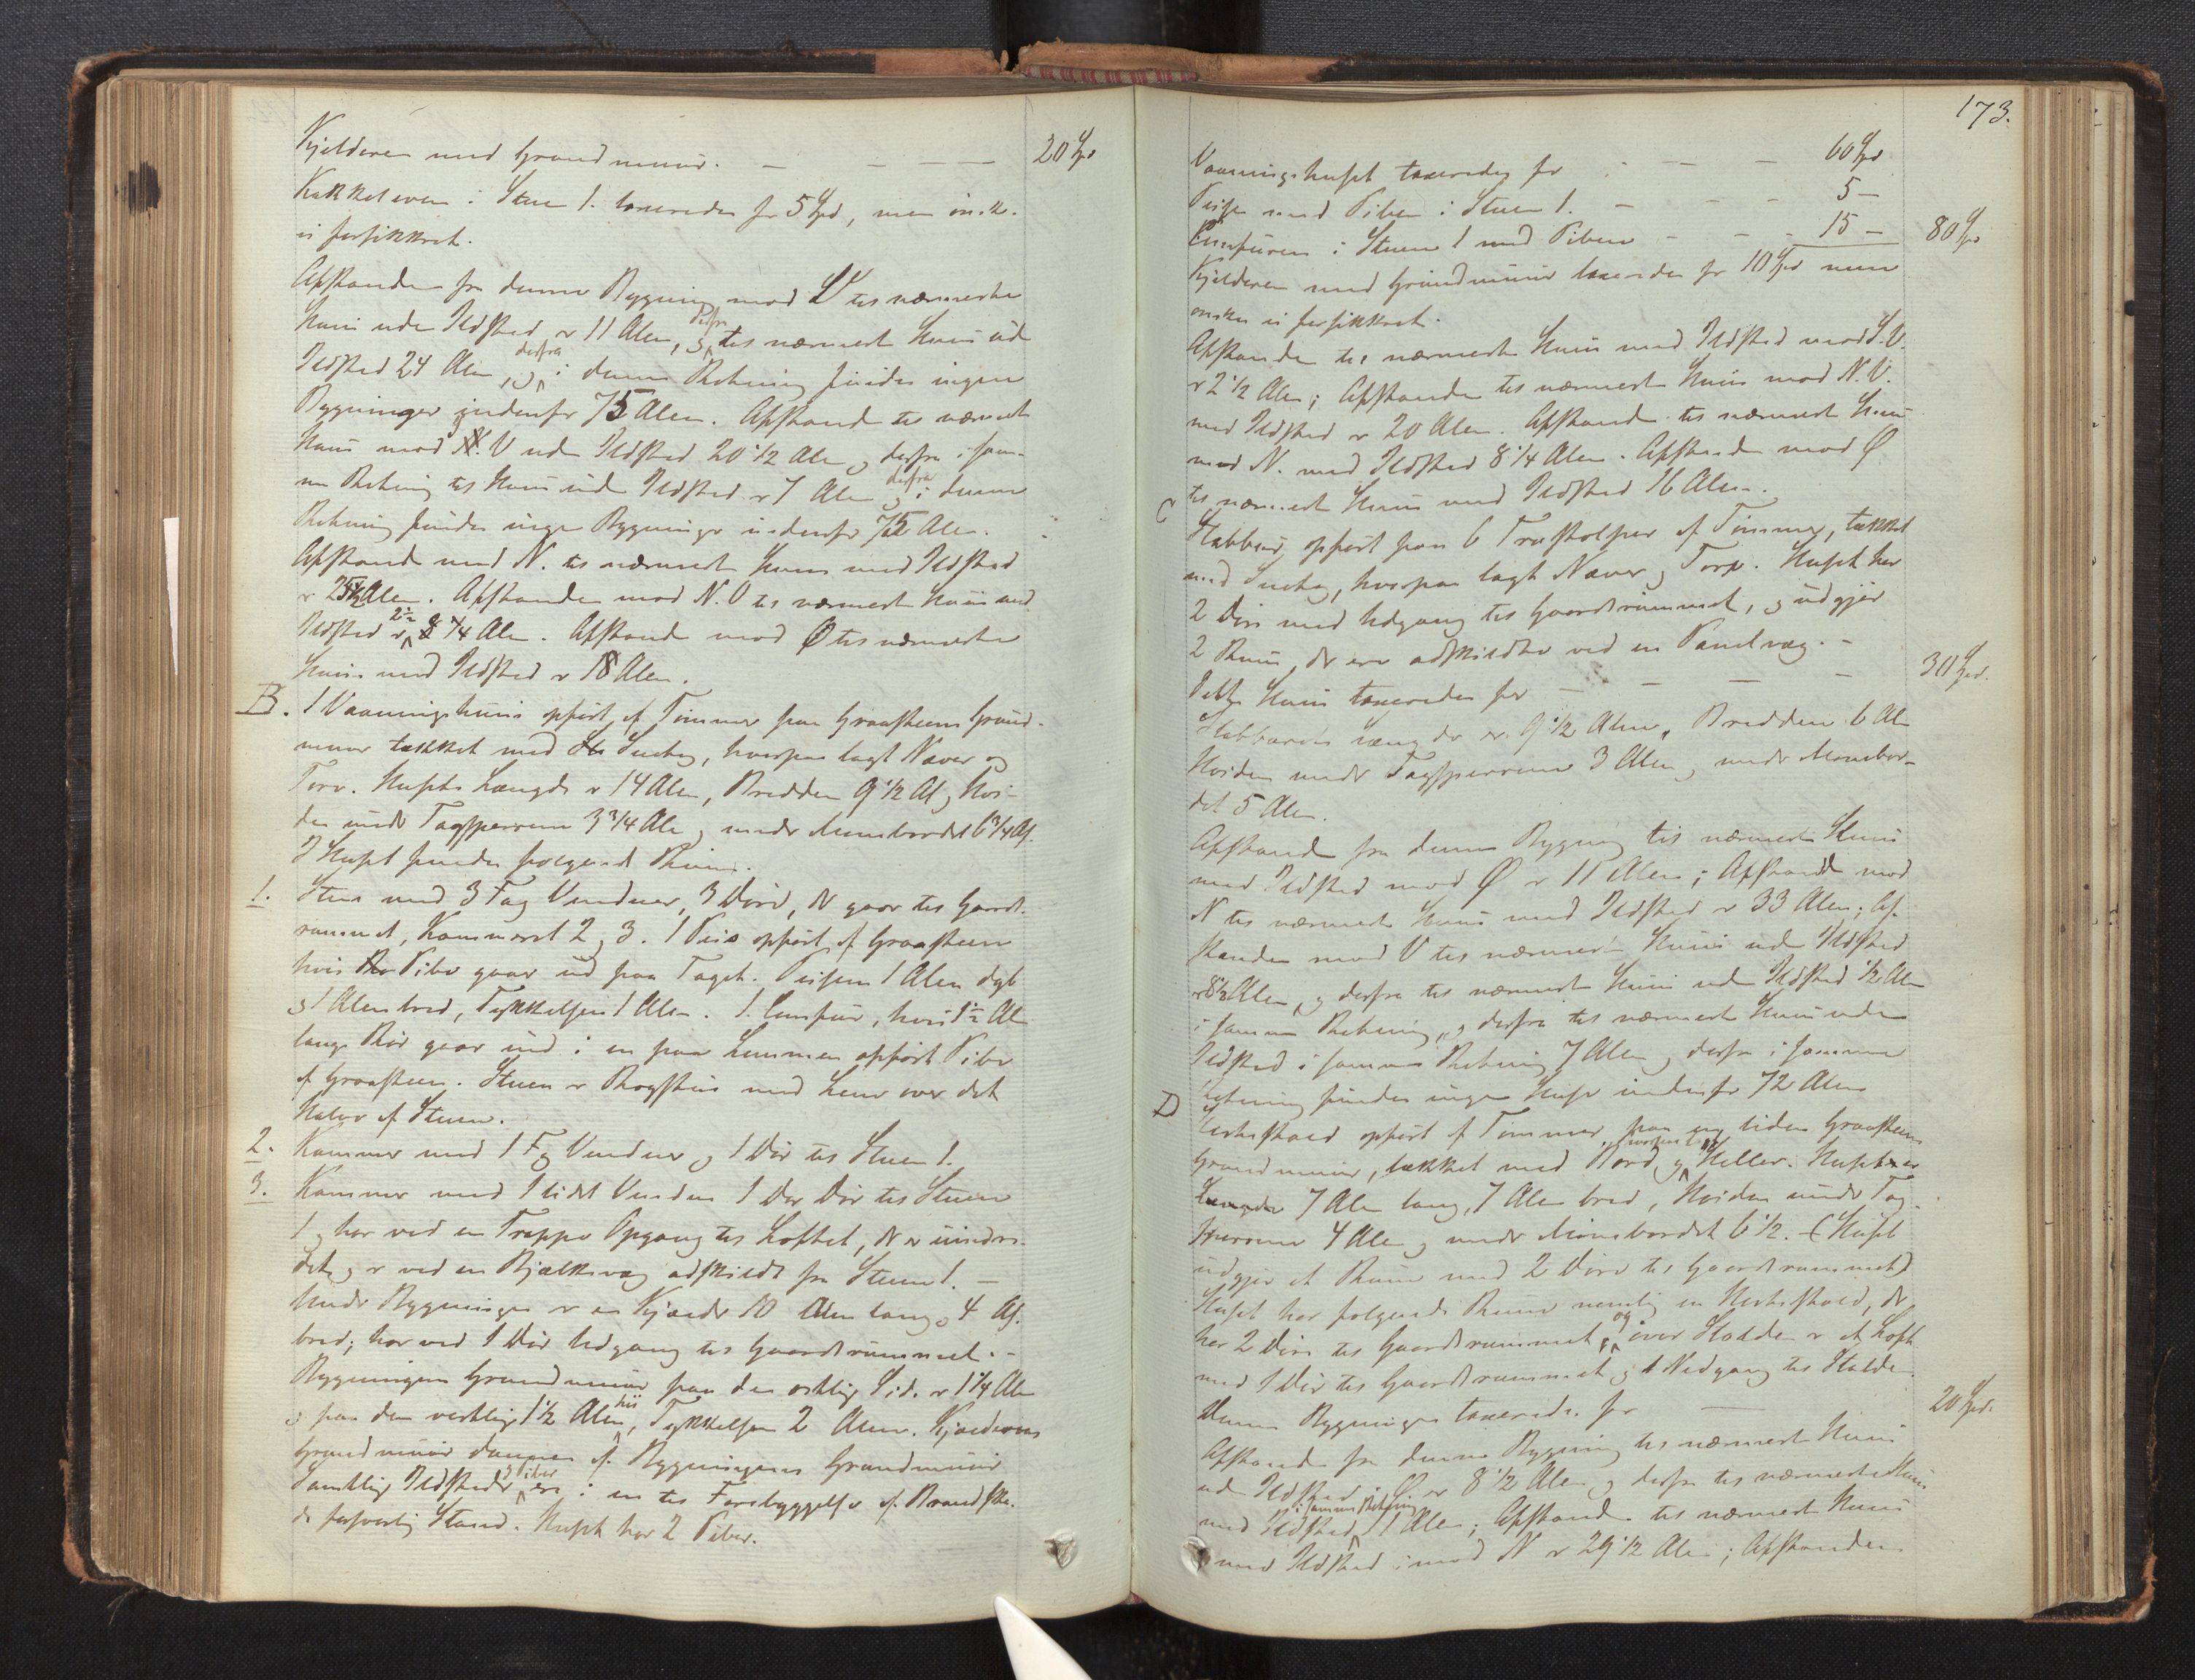 Kjelderen med Grundmuur. — — — — 20 Spd
Kakkelovnen i Stuen 1. taxeredes for 5 Spd, men önsk.
ei forsikkret.
Afstanden fra denne Bygning mod V til nærmeste
Huus uden Ildsted er 11 Alen, og derfra til nærmeste Huus ud
Ildsted 24 Alen, og derfra i denne Retning findes ingen
Bygninger indenfor 75 Alen. Afstand til nærmeste
Huus mod N. V uden Ildsted 20 1/2 Alen og derfra i sam-
me Retning til Huus uden Ildsted er 7 Alen og derfra i denne
Retning findes ingen Bygninger indenfor 75 Alen.
Afstand mod N. til nærmeste Huus med Ildsted
er Alen. Afstanden mod N. O til nærmeste Huus med
Ildsted er Alen. Afstand mod Ø til nærmeste
Huus med Ildsted er 18 Alen.
B. 1 Vaaningshuus opført af Tømmer paa Graasteens Grund-
muur tækket med Sutag, hvorpaa lagt Næver og
Torv. Husets Længde er 14 Alen, Bredden 9 1/2 Al og Høi-
den under Tagsperrene 3 3/4 Alen og under Mønsbordet 6 3/4 Al.
I Huset findes følgende Rum.
1. Stue med 3 Fag Vinduer, 3 Døre, der gaar til Gaards-
rummet, Kammerset 2 og 3. 1 Peis opført af Graasteen
hvis Pibe gaar ud paa Taget. Peisen 1 Alen dyb
og 1 Alen bred, Tykkelsen 1 Alen. 1 Comfur, hvis 1 1/2 Al
lange Rør gaar ind i en paa Lemmen opført Pibe
af Graasteen. Stuen er Røgstue med Lem over det
Halve af Stuen.
2. Kammer med 1 Fag Vinduer og 1 Dør til Stuen 1.
3. Kammer med 1 lidet Vindue 1 Dør til Stuen
1 og har ved en Trappe Opgang til Loftet, der er uindre-
det, og er ved en Bjelkevæg adskildt fra Stuen 1. —
Under Bygningen er en Kjælder 10 Alen lang og 4 Al.
bred; har ved 1 Dør Udgang til Gaardsrummet. —
Bygningens Grundmuur paa den østlige Side er 1 1/4 Alen
og paa den vestlige 1 1/2 Alen höi, Tykkelsen 2 Alen. Kjælderens
Grundmuur dannes af Bygningens Grundmuur
Samtlige Ildsteder og Piber ere i en til Forebyggelse af Brandska-
de forsvarlig Stand. Huset har 2 Piber.
173.
Vaaningshuset taxeredes for — — 60 Spd
Peisen med Piben i Stuen 1. — — — 5 —
Comfuren i Stuen 1 med Piben — — — 15 — 80 Spd
Kjelderen med Grundmuur taxeredes for 10 Spd men
ønskes ei forsikkret.
Afstanden til nærmeste Huus med Ildsted mod S. V.
er 2 1/2 Alen; Afstanden til nærmeste Huus mod N. V.
med Ildsted er 20 Alen. Afstand til nærmeste Huus
mod N. med Ildsted 8 1/4 Alen. Afstanden mod Ø
til nærmeste Huus med Ildsted 16 Alen.
C Stabbuur, opført paa 6 Træstolper af Tømmer, tækket
med Sutag, hvorpaa lagt Næver og Torv. Huset har
2 Døre med Udgang til Gaardsrummet, og udgjør
2 Rum, der ere adskildte ved en Panelvæg. —
Dette Huus taxeredes for — — — — 30 Spd.
Stabburets Længde er 9 1/2 Alen, Bredden 6 Al
Høiden under Tagsperrene 3 Alen og under Mønsbor-
det 5 Alen.
Afstand fra denne Bygning til nærmeste Huus
med Ildsted mod Ø er 11 Alen; Afstand mod
N til nærmeste Huus med Ildsted er 33 Alen; Af-
standen mod V til nærmeste Huus uden Ildsted
er 8 1/2 Alen, og derfra til nærmeste Huus uden Ildsted 1/2 Alen
i samme Retning, og derfra til nærmeste Huus uden
Ildsted i samme Retning 7 Alen og derfra i samme
Retning findes ingen Huse indenfor 72 Alen
D Hestestald opført af Tømmer paa en liden Graasteens
Grundmuur, tækket med Bord og hvorpaa lagt Heller. Huset er
7 Alen lang, 7 Alen bred, Høiden under Tag-
sperrene 4 Alen og under Mønsbordet 6 1/2. (Huset
udgjør et Rum med 2 Døre til Gaardsrummet)
Huset har følgende Rum nemlig en Hestestald, der
har 2 Døre til Gaardsrummet, og over Stalden er et Loft
med 1 Dør til Gaardsrummet og 1 Nedgang til Stalden.
Denne Bygningen taxeredes for — 20 Spd.
Afstand fra denne Bygning til nærmeste Huus
uden Ildsted i Ø er 8 1/2 Alen og derfra til nærmeste Huus
med Ildsted i samme Retning 11 Alen; Afstand til nærmeste Huus
med Ildsted imod N er 29 1/2 Alen; Afstanden